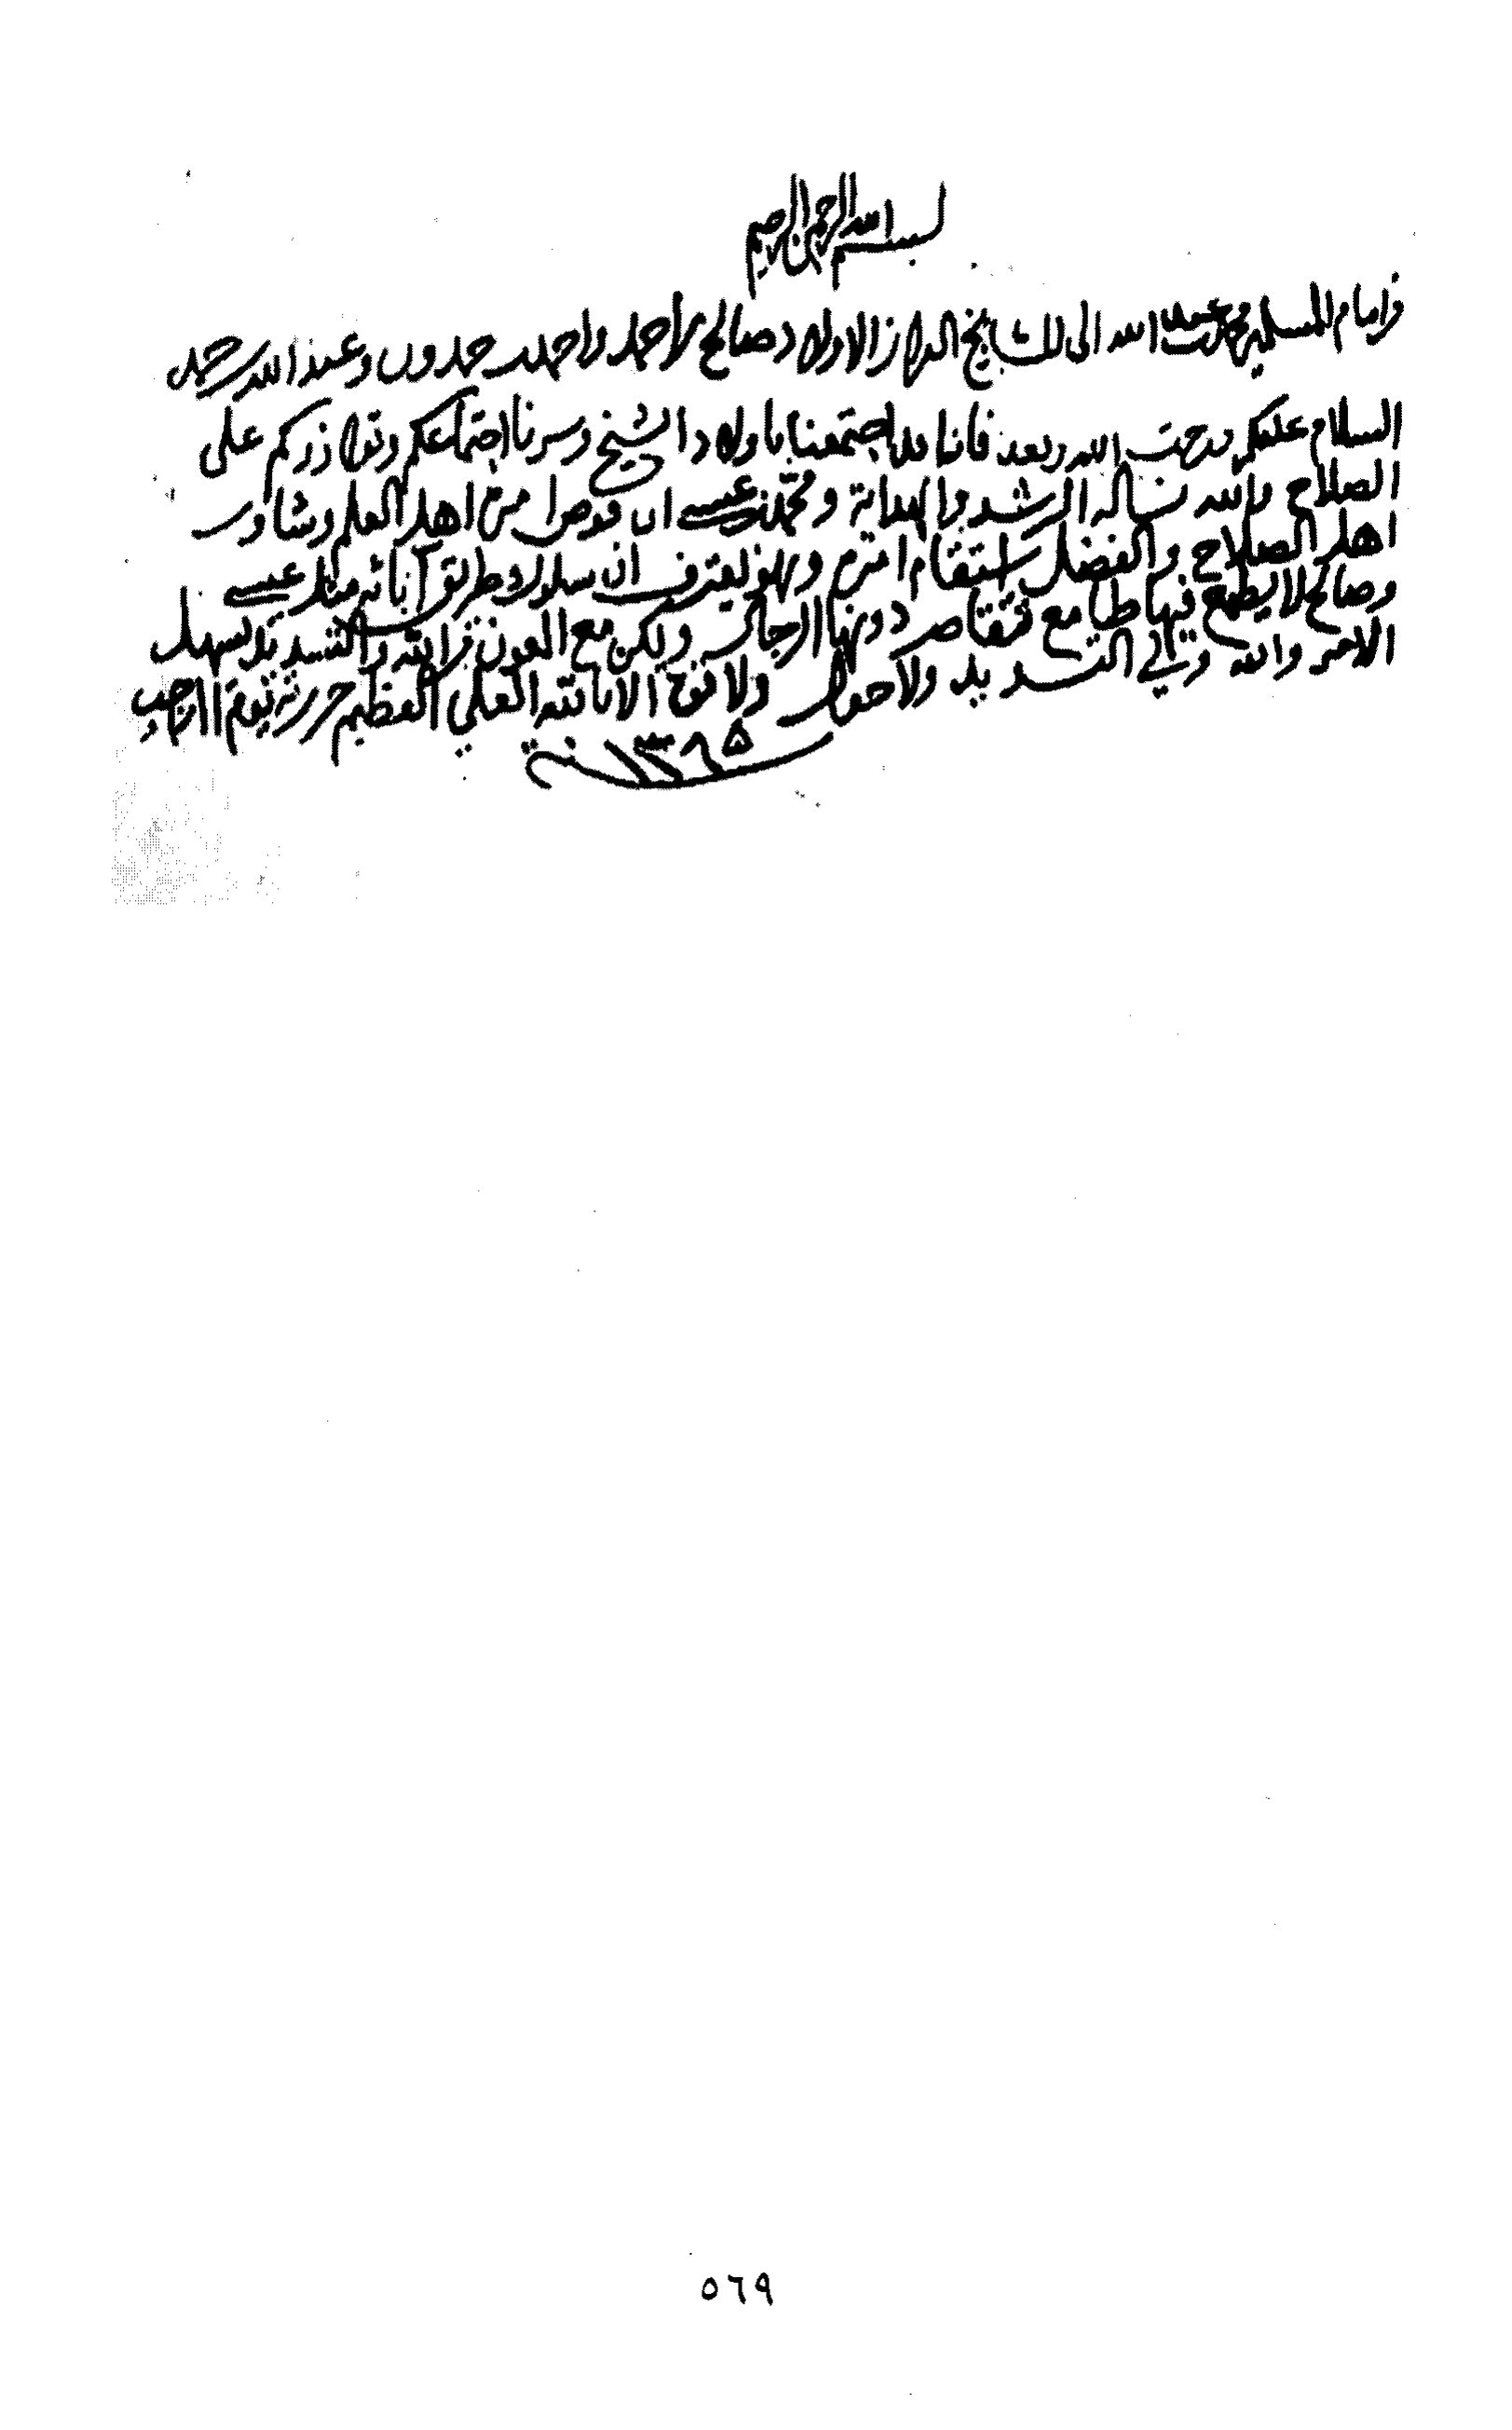 بسم الله الرحمن الرحيم
من امام المسلمين محمد بن عبد الله الى المشايخ الاولاد صالح احمد واحمد حمدون وعبد الله حمد
السلام عليكم ورحمت الله وبعد فانا اجتمعنا باولاد الشيخ وسرنا اجتماعكم وتوازركم على
الصلاح والله نساله الرشد والهداية ومحمد بن عيسى ان فوض امره اهل العلم وشاور
اهل الصلاح والفضل استقام امره وهو يعترف ان سلوك طريق آبائه مثل عيسى
وصالح لا يطمع فيها طامع تتقاصر دونها الرجال ولكن مع العون من الله والتسديد يسهل
الامر والله ولي التسديد ولا حول ولا قوة الا بالله العلي العظيم حرر يوم رجب
سنة ١٣٦٥
٥٦٩